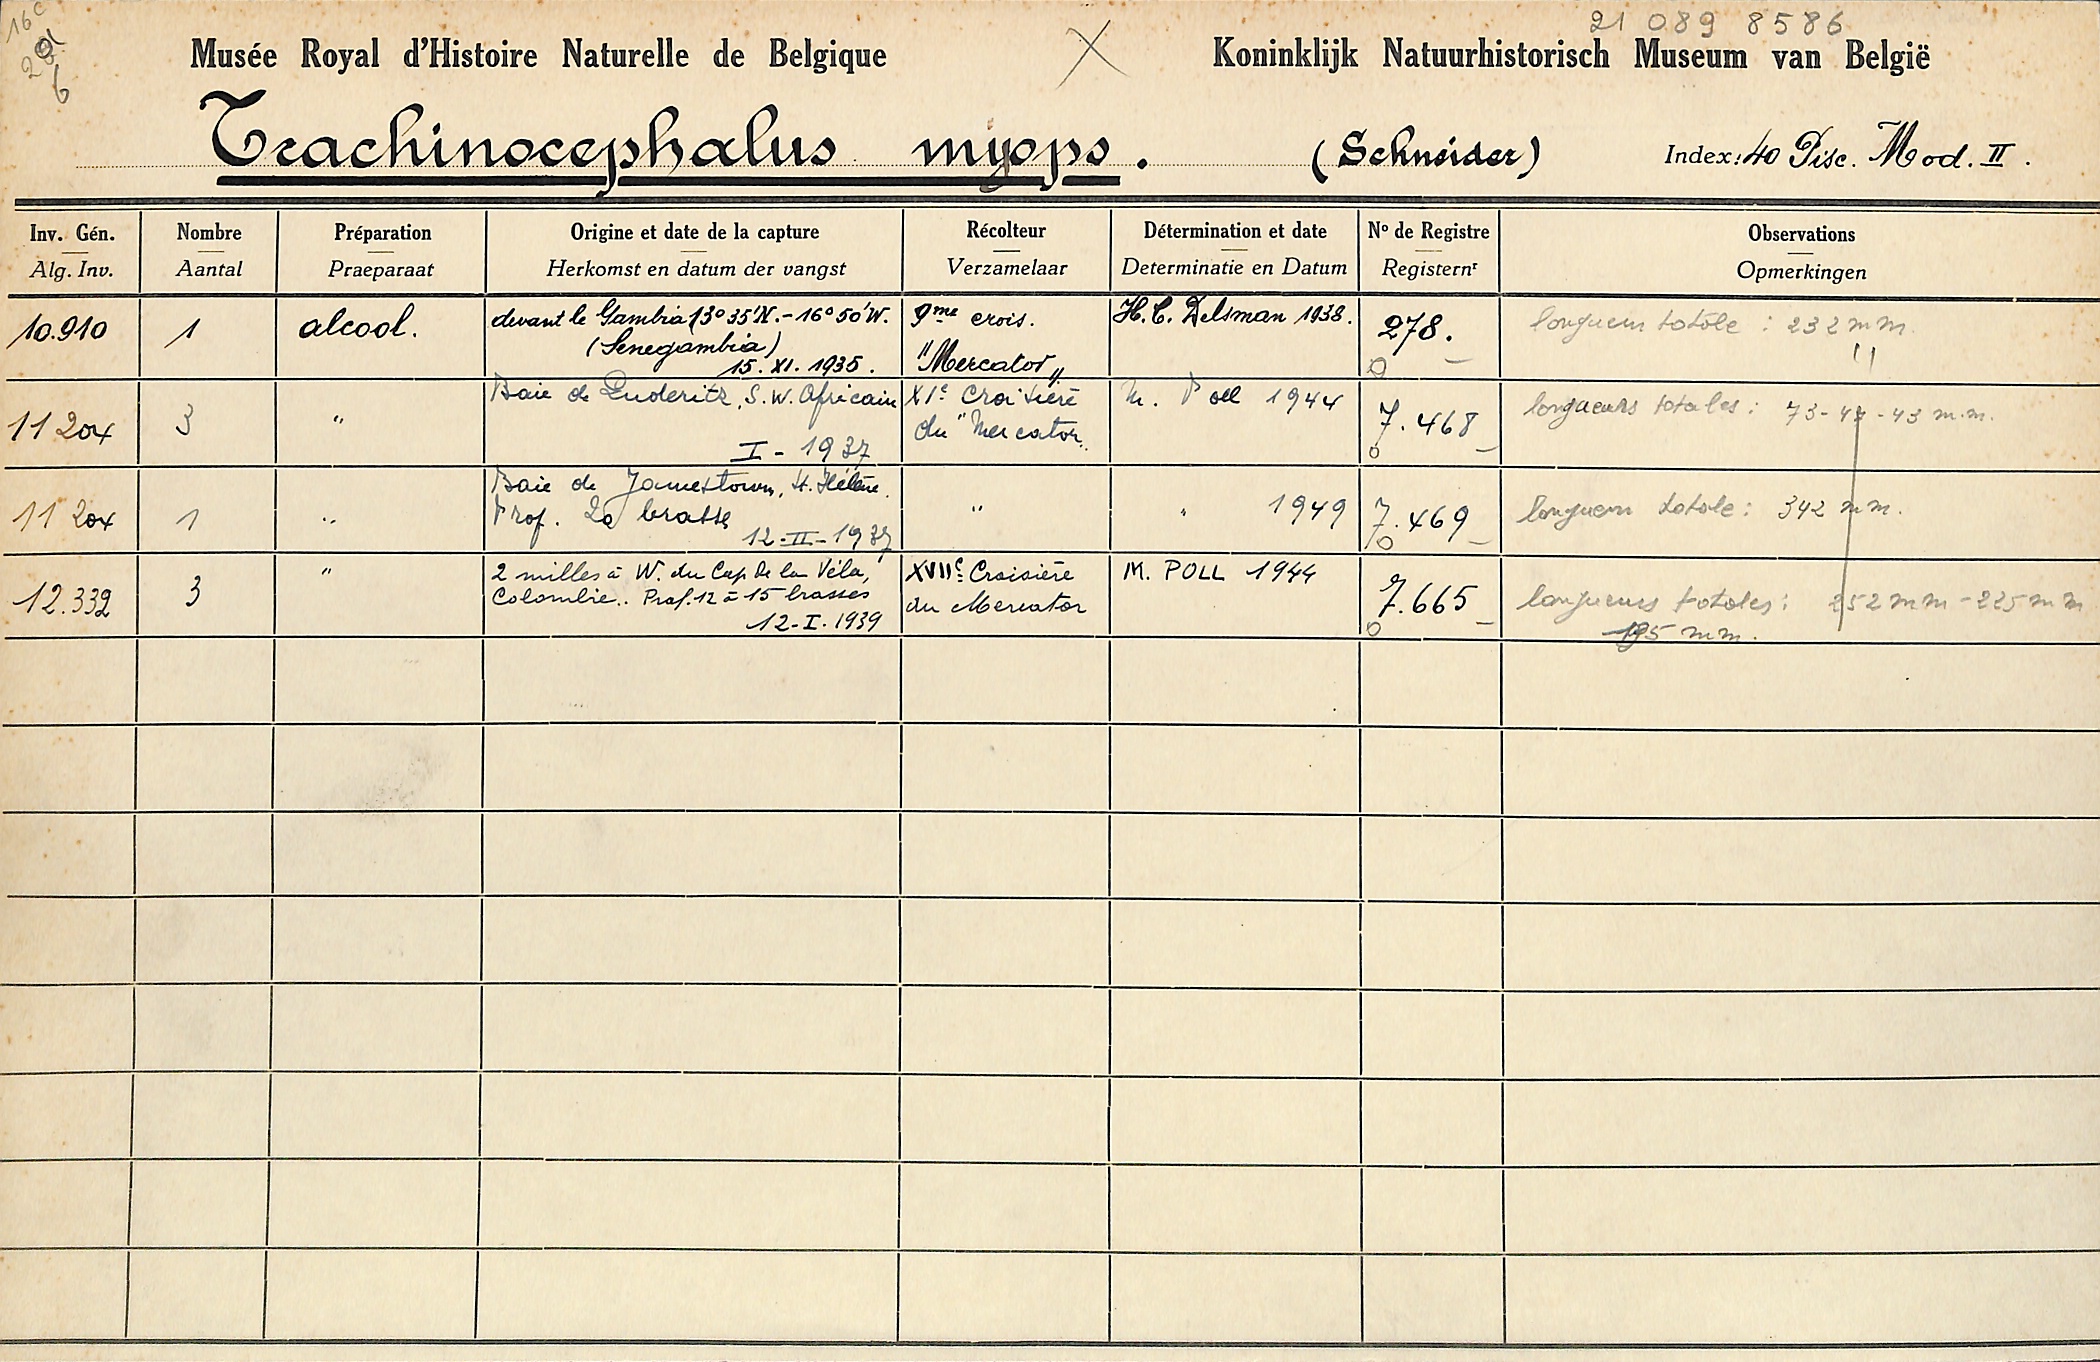 16c
21 089 8586
Musée Royal d'Histoire Naturelle de Belgique
X
Koninklijk Natuurhistorisch Museum van België
Trachinocephalus myops.
(Schneider)
Index: 40 Pisc. Mod. II.
Inv. Gén.
Alg. Inv.
Nombre
Aantal
Préparation
Praeparaat
Origine et date de la capture
Herkomst en datum der vangst
Récolteur
Verzamelaar
Détermination et date
Determinatie en Datum
No de Registre
Registernr
Observations
Opmerkingen
10.910
1
alcool.
devant le Gambia 13° 35'N. - 16° 50'W.
(Senegambia)
15. XI. 1935.
9me crois.
"Mercator"
H. C. Delsman 1938.
278.
longueur totale : 232 mm.
11 204
3
"
Baie de Luderitz, S.W. Africain
I - 1937
XIe Croisière
du "Mercator.
M. Poll 1944
7.468
longueurs totales : 73-47-43 m.m.
11 204
1
"
Baie de Jamestown, St. Hélène.
Prof. 20 brasse
12-II-1937
"
" 1949
7.469
longueur totale : 342 mm.
12.332
3
"
2 milles à W. du Cap de la Véla,
Colombie.. Prof. 12 à 15 brasses
12-I.1939
XVIIe Croisière
du Mercator
M. POLL 1944
7.665
longueurs totales : 252 mm - 225 mm
195 mm.